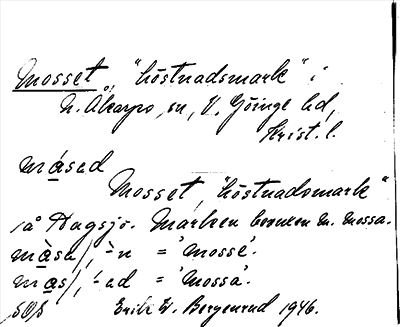 Mosset, "höstnadsmark" i
N. Åkarps sn, V. Göinge hd,
Krist. l.
måsad
Mosset, "höstnadsmark"
på Dagsjö. Marken bevuxen m. mossa.
måsa/, -n = 'mosse'.
mås/, -ad = 'mossa'.
Erik W. Bergenrud 1946.